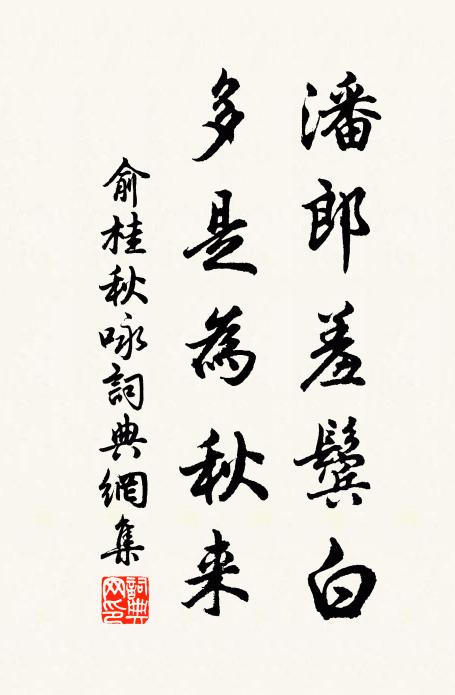 潘郎羞鬓白
多是為秋来
俞桂秋咏詞典網集
詞典网印